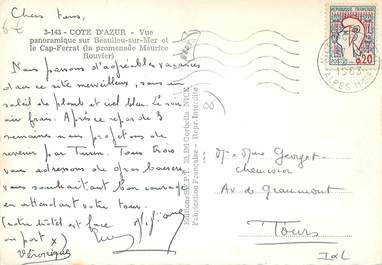 Chers tous,
6€
3-143 - COTE D'AZUR - Vue
panoramique sur Beaulieu-sur-Mer et
le Cap-Ferrat (la promenade Maurice
Rouvier)
Nous passons d'agréables vacances
dans ce site merveilleux, sous un
soleil de plomb et ciel bleu. Le soir
air frais. Après ce repos de 3
semaines nous projetons de
revenir par Turin. Tous trois
vous adressons de gros baisers,
vous souhaitant bon courage
en attendant votre tour.
(notre hôtel est face
au port x)
Véronique
Editions S.E.P.T. 28, Bd Gorbella NICE
Fabrication Française - Repr. Interdite
REPUBLIQUE FRANÇAISE
0,20
POSTES
ALPES MMES
Mr - Mme Georget
Av de Grammont
Tours
IxL